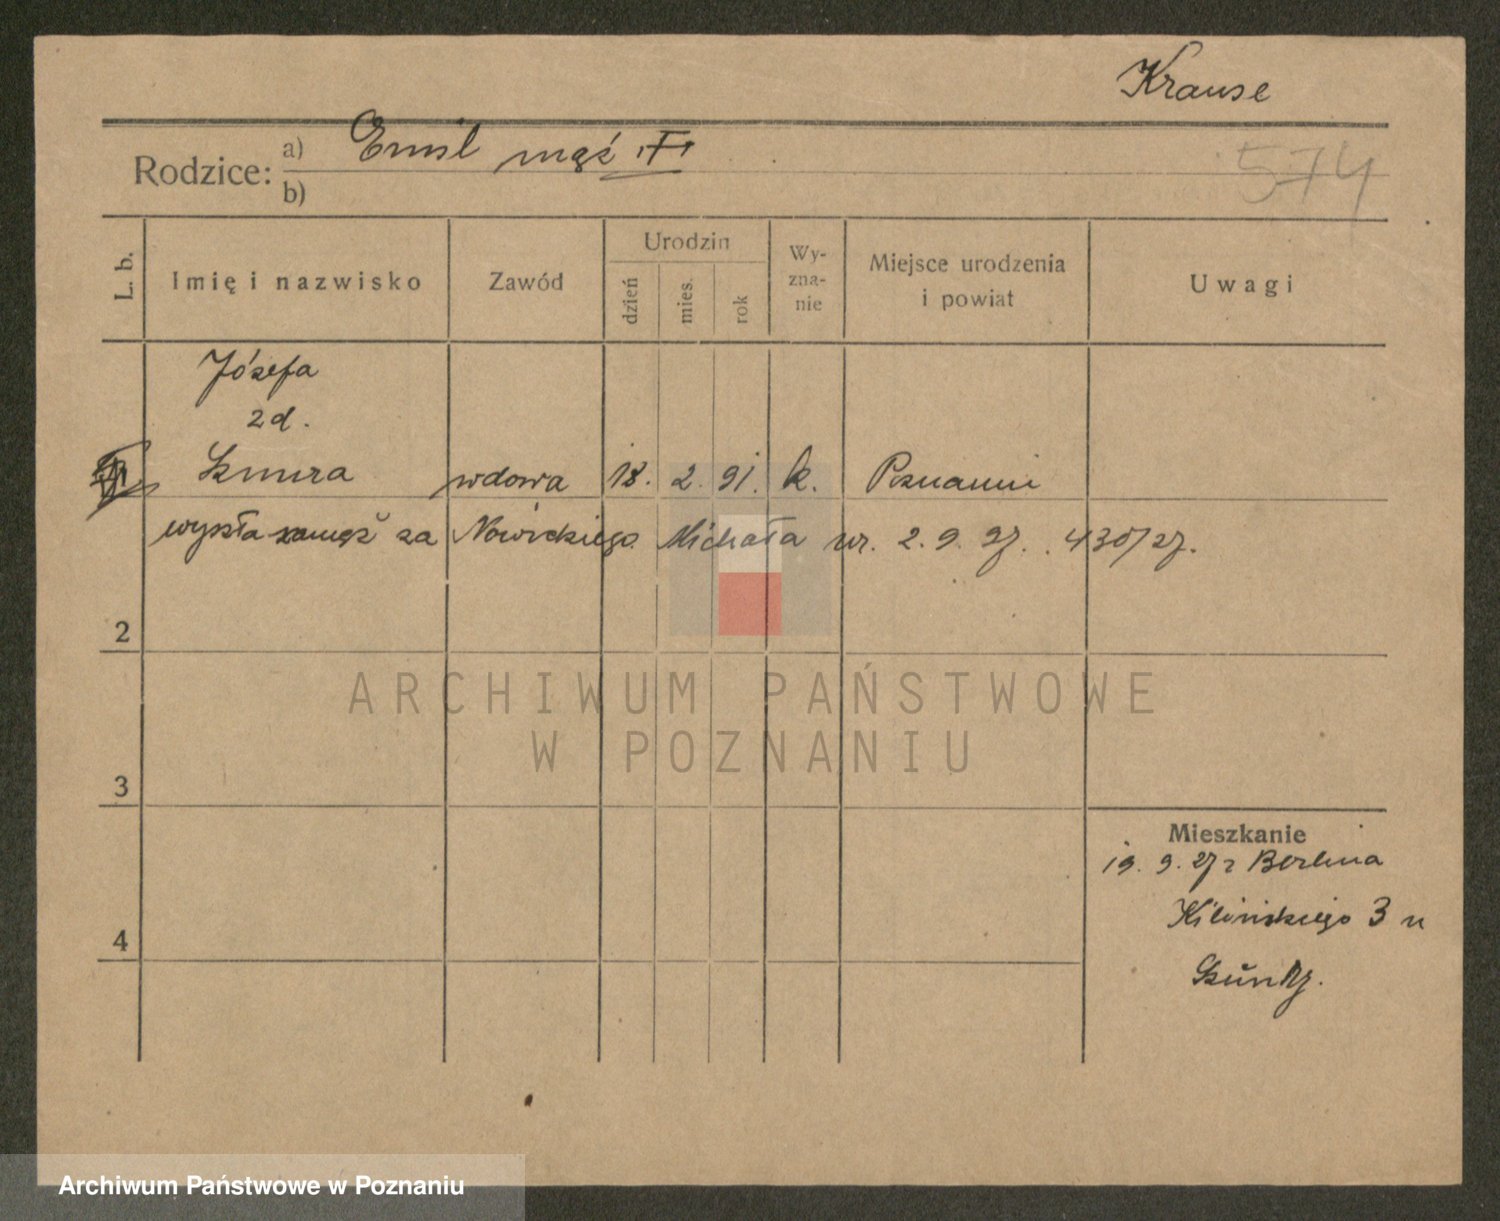 Krause
Rodzice:
a) Emil mąż
b)
574
L. b.
Imię i nazwisko
Zawód
Urodzin
dzień
mies.
rok
Wy-
zna-
nie
Miejsce urodzenia
i powiat
Uwagi
Józefa
zd.
Szmura wdowa 18. 2. 91. k. Poznaniu
wyszła zamęż za Nowickiego Michała ur. 2. 9. 97. 430/27.
2
3
4
Mieszkanie
19. 9. 27 z Berlina
Kilińskiego 3 u
ARCHIWUM PAŃSTWOWE
W POZNANIU
Archiwum Państwowe w Poznaniu